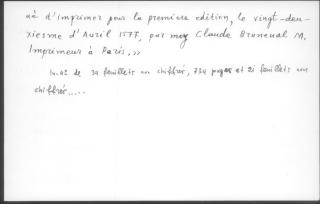 ué d'imprimer pour la première édition, le vingt-deu-
xiesme d'Auril 1577, par moy Claude Bruneual M.
Imprimeur à Paris, »
In-4° de 34 feuillets non chiffrés, 734 pages et 21 feuillets non
chiffrés.....